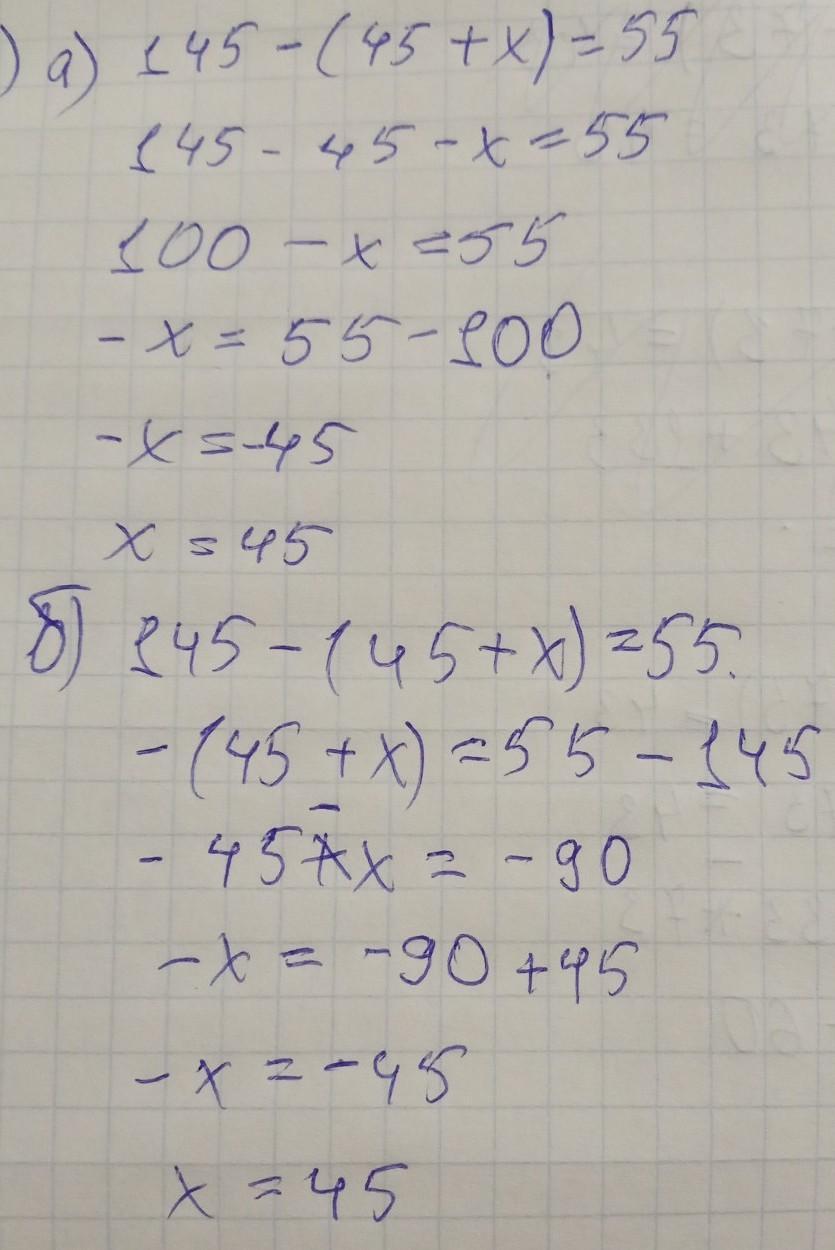 ) а) 145 - (45 + x) = 55
145 - 45 - x = 55
100 - x = 55
- x = 55 - 100
- x = -45
x = 45
б) 145 - (45 + x) = 55.
- (45 + x) = 55 - 145
- 45 - x = - 90
- x = - 90 + 45
- x = - 45
x = 45